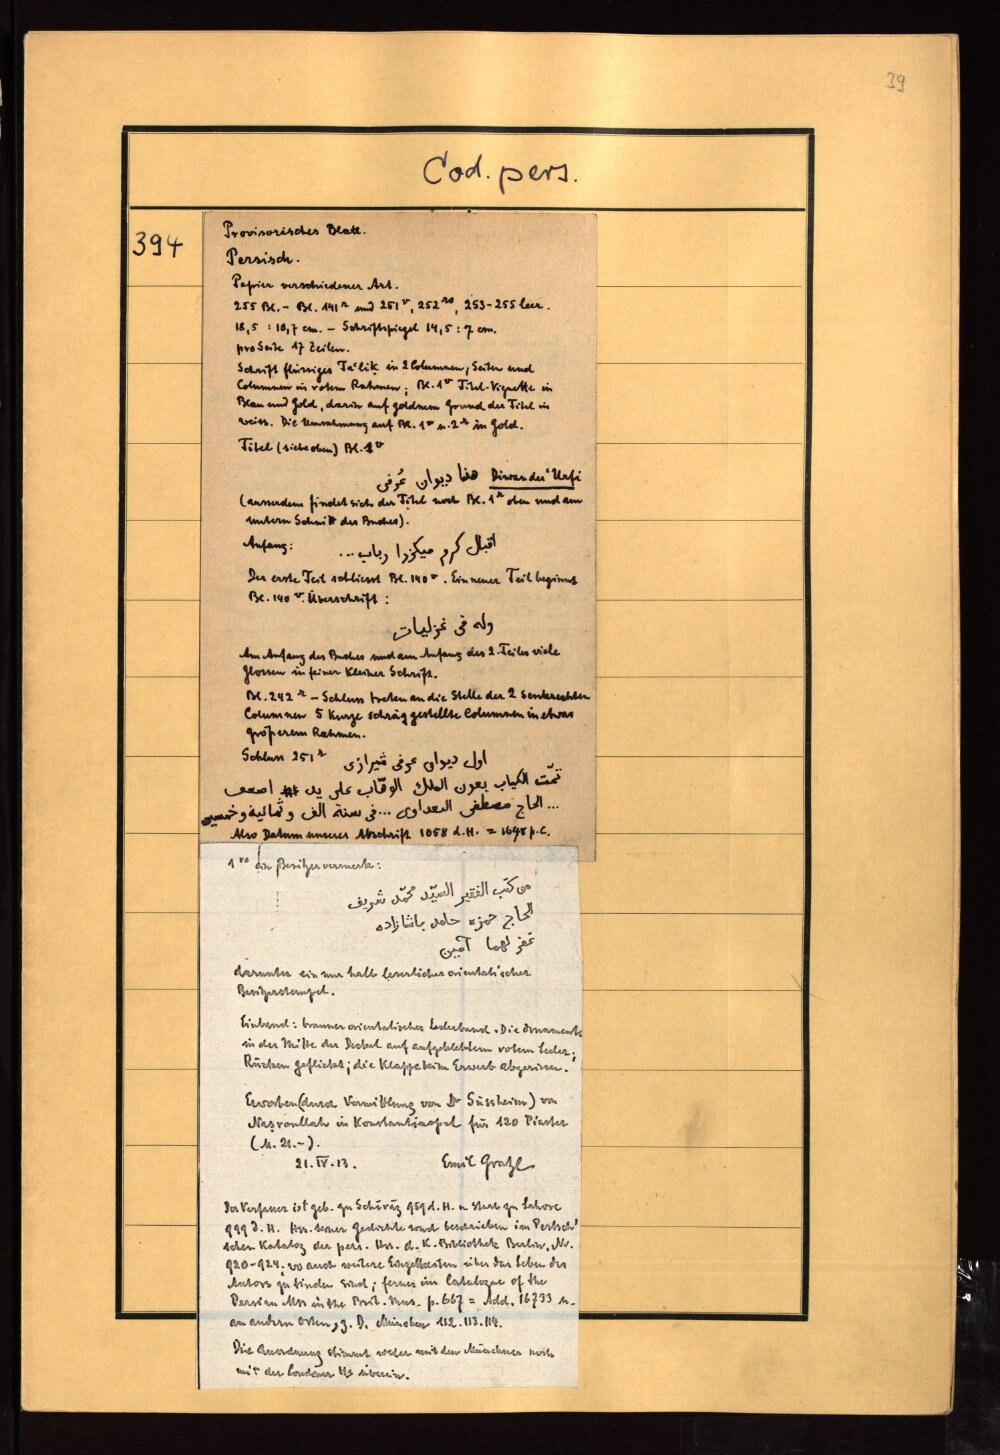 39
Cod. pers.
394
Provisorisches Blatt.
Persisch.
Papier verschiedener Art.
255 Bl. – Bl. 141r und 251v, 252ro, 253–255 leer.
18,5 : 10,7 cm. – Schriftspiegel 14,5 : 7 cm.
pro Seite 17 Zeilen.
Schrift flüssiges Ta'lik in 2 Columnen, Seiten und
Columnen in rotem Rahmen; Bl. 1v Titel-Vignette in
Blau und Gold, darin auf goldnem Grund der Titel in
weiss. Die Umrahmung auf Bl. 1v u. 2r in Gold.
Titel (siehe oben) Bl. 1v
هذا ديوان عُرفى Diwan des 'Urfi
(ausserdem findet sich der Titel noch Bl. 1r oben und am
untern Schnitt des Buches).
Anfang: اقبال كرم ميكزدا رباب...
Der erste Teil schliesst Bl. 140v. Ein neuer Teil beginnt
Bl. 140v. Überschrift:
وله فى غزليات
Am Anfang des Buches und am Anfang des 2. Teiles viele
Glossen in feiner kleiner Schrift.
Bl. 242r – Schluss treten an die Stelle der 2 senkrechten
Columnen 5 kurze schräg gestellte Columnen in etwas
größerem Rahmen.
Schluss 251r اول ديوان عرفى شيرازى
تمّت الكتاب بعون الملك الوهّاب على يد اضعف
... الحاج مصطفى البغداوى ... فى سنة الف و ثمانية و خمسين
Also Datum unserer Abschrift 1058 d. H. = 1648 p. C.
1ro ein Besitzervermerk:
من كتب الفقير السيّد محمّد شريف
الحاج حمزه حامد باشازاده
غفر لهما آمين
darunter ein nur halb leserlicher orientalischer
Besitzerstempel.
Einband: brauner orientalischer Lederband. Die Ornamente
in der Mitte der Deckel auf aufgeklebtem rotem Leder;
Rücken geflickt; die Klappe beim Erwerb abgerissen.
Erworben (durch Vermittlung von Dr Süssheim) von
Nasroullah in Konstantinopel für 120 Piaster
(M. 21.–).
21. IV. 13. Emil Gratzl
Der Verfasser ist geb. zu Schīrāz 959 d. H. u. starb zu Lahore
999 d. H. Hss. seiner Gedichte sind beschrieben im Pertsch'
schen Katalog der pers. Hss. d. K. Bibliothek Berlin, Nr.
920–924, wo auch weitere Einzelheiten über das Leben des
Autors zu finden sind; ferner im Catalogue of the
Persian Mss in the Brit. Mus. p. 667 = Add. 16733 u.
an andern Orten, z. B. München 112. 113. 114.
Die Anordnung stimmt weder mit den Münchner noch
mit der Londoner Hs überein.